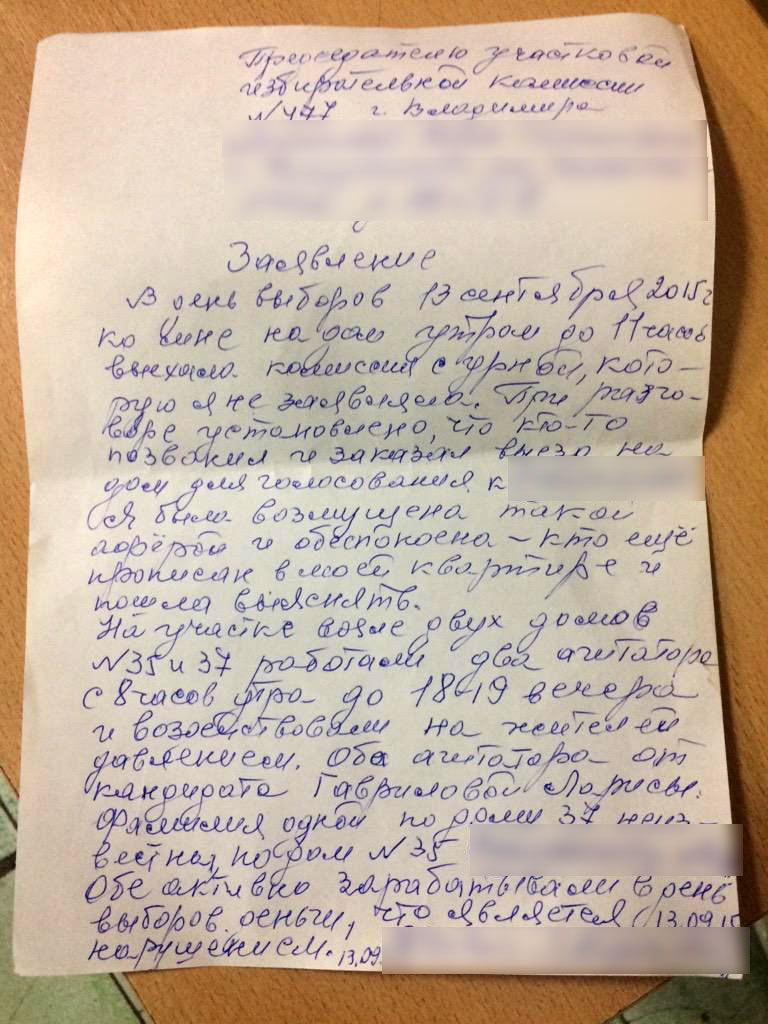 Председателю участковой
избирательной комиссии
№477 г. Владимира
Заявление
В день выборов 13 сентября 2015г
ко мне на дом утром до 11 часов
выехала комиссия с урной, кото-
рую я не заявляла. При разго-
воре установлено, что кто-то
позвонил и заказал выезд на
дом для голосования к
Я была возмущена такой
аферой и обеспокоена - кто ещё
прописан в моей квартире и
пошла выяснять.
На участке возле двух домов
№35 и 37 работали два агитатора
с 8 часов утра до 18-19 вечера
и воздействовали на жителей
давлением. Оба агитатора от
кандидата Гавриловой Ларисы.
Фамилия одной по дому 37 неиз-
вестна, по дом №35
Обе активно зарабатывали в день
выборов деньги, что является 13.09.15
нарушением. 13.09.